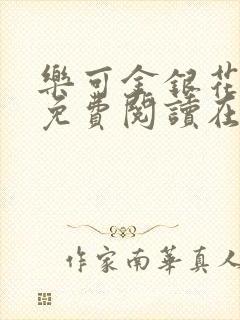 樂可金銀花
免費閱讀在
作家南華真人